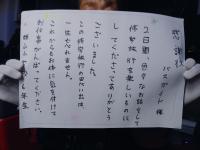 感謝状
バスガイド 様
2日間、色々なお話をして
修学旅行を楽しいものに
してくださってありがとう
ございました。
この修学旅行の思い出は、
一生忘れません。
これからもお体に気を付けて
お仕事がんばってください。
6年生